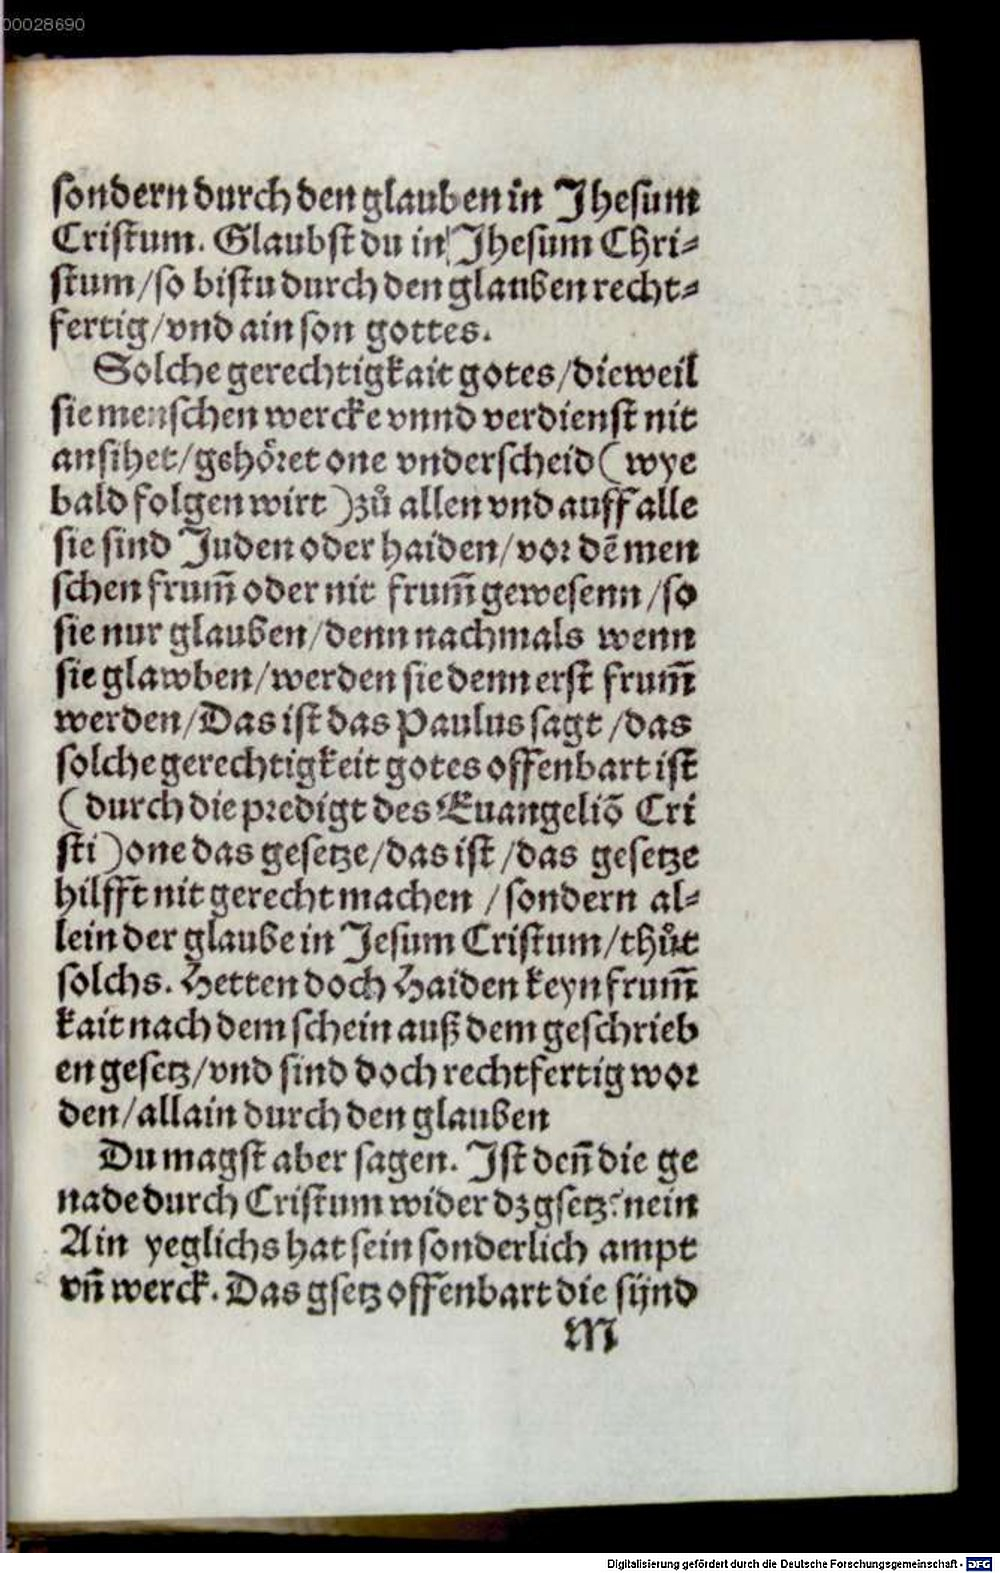 00028690
sondern durch den glauben in Jhesum
Cristum. Glaubst du in Jhesum Chri⸗
stum/so bistu durch den glauben recht⸗
fertig/vnd ain son gottes.
Solche gerechtigkait gotes/dieweil
sie menschen wercke vnnd verdienst nit
ansihet/gehöret one vnderscheid (wye
bald folgen wirt) zů allen vnd auff alle
sie sind Juden oder haiden/vor dē men
schen frum̄ oder nit frum̄ gewesenn/so
sie nur glauben/denn nachmals wenn
sie glawben/werden sie denn erst frum̄
werden/Das ist das Paulus sagt/das
solche gerechtigkeit gotes offenbart ist
(durch die predigt des Euangeliō Cri
sti) one das gesetze/das ist/das gesetze
hilfft nit gerecht machen/sondern al⸗
lein der glaube in Jesum Cristum/thůt
solchs. Hetten doch Haiden keyn frum̄
kait nach dem schein auß dem geschrieb
en gesetz/vnd sind doch rechtfertig wor
den/allain durch den glauben
Du magst aber sagen. Ist den̄ die ge
nade durch Cristum wider dz gsetz? nein
Ain yeglichs hat sein sonderlich ampt
vn̄ werck. Das gsetz offenbart die sünd
M
Digitalisierung gefördert durch die Deutsche Forschungsgemeinschaft - DFG